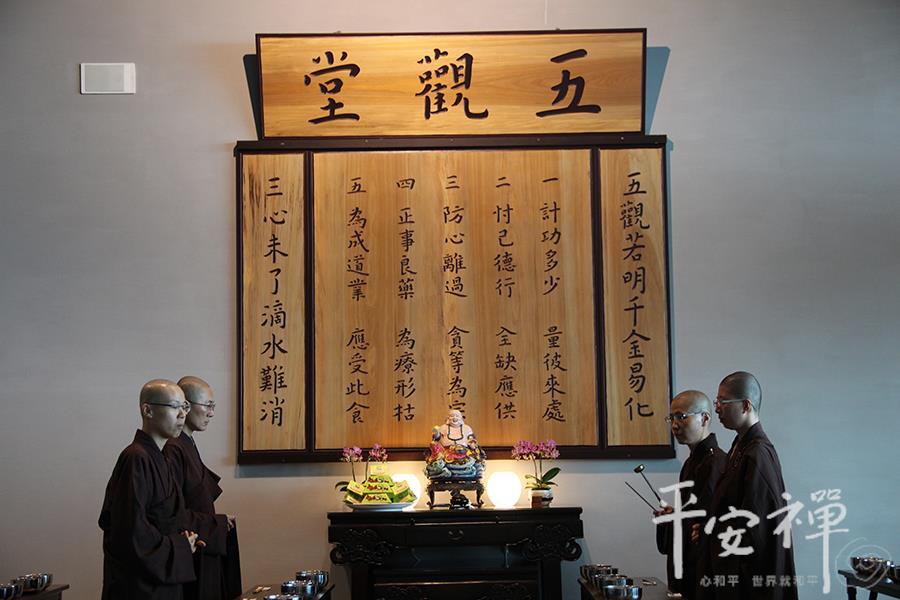 五觀堂
五觀若明千金易化
一 計功多少 量彼來處
二 忖己德行 全缺應供
三 防心離過 貪等為宗
四 正事良藥 為療形枯
五 為成道業 應受此食
三心未了滴水難消
平安禪
心和平 世界就和平